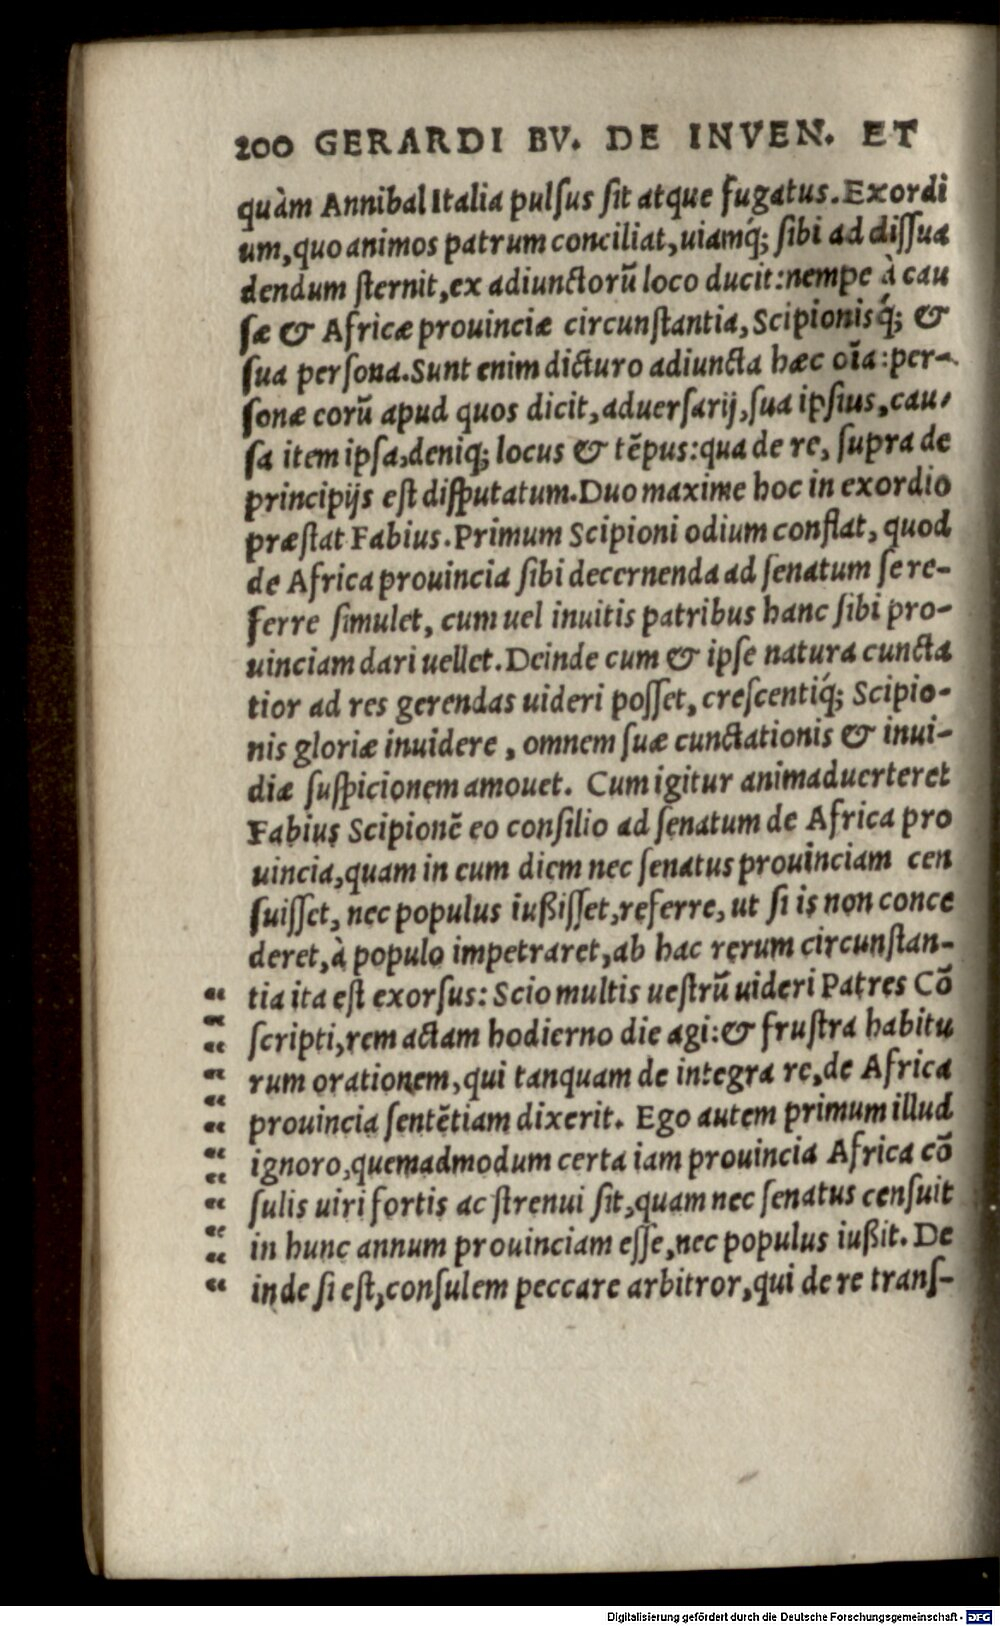 200 GERARDI BV. DE INVEN. ET
quàm Annibal Italia pulſus ſit atque fugatus. Exordi
um, quo animos patrum conciliat, uiamq́; ſibi ad diſſua
dendum ſternit, ex adiunctorũ loco ducit: nempe à cau
ſæ & Africæ prouinciæ circunſtantia, Scipionisq́; &
ſua perſona. Sunt enim dicturo adiuncta hæc oĩa: per-
ſonæ eorũ apud quos dicit, aduerſarij, ſua ipſius, cau-
ſa item ipſa, deniq; locus & tẽpus: qua de re, ſupra de
principijs eſt diſputatum. Duo maxime hoc in exordio
præſtat Fabius. Primum Scipioni odium conflat, quod
de Africa prouincia ſibi decernenda ad ſenatum ſe re-
ferre ſimulet, cum uel inuitis patribus hanc ſibi pro-
uinciam dari uellet. Deinde cum & ipſe natura cuncta
tior ad res gerendas uideri poſſet, creſcentiq́; Scipio-
nis gloriæ inuidere, omnem ſuæ cunctationis & inui-
diæ ſuſpicionem amouet. Cum igitur animaduerteret
Fabius Scipionẽ eo conſilio ad ſenatum de Africa pro
uincia, quam in eum diem nec ſenatus prouinciam cen
ſuiſſet, nec populus iußiſſet, referre, ut ſi is non conce
deret, à populo impetraret, ab hac rerum circunſtan-
“ tia ita eſt exorſus: Scio multis ueſtrũ uideri Patres Cõ
“ ſcripti, rem actam hodierno die agi: & fruſtra habitu
“ rum orationem, qui tanquam de integra re, de Africa
“ prouincia ſentẽtiam dixerit. Ego autem primum illud
“ ignoro, quemadmodum certa iam prouincia Africa cõ
“ ſulis uiri fortis ac ſtrenui ſit, quam nec ſenatus cenſuit
“ in hunc annum prouinciam eſſe, nec populus iußit. De
“ inde ſi eſt, conſulem peccare arbitror, qui de re tranſ-
Digitalisierung gefördert durch die Deutsche Forschungsgemeinschaft - DFG